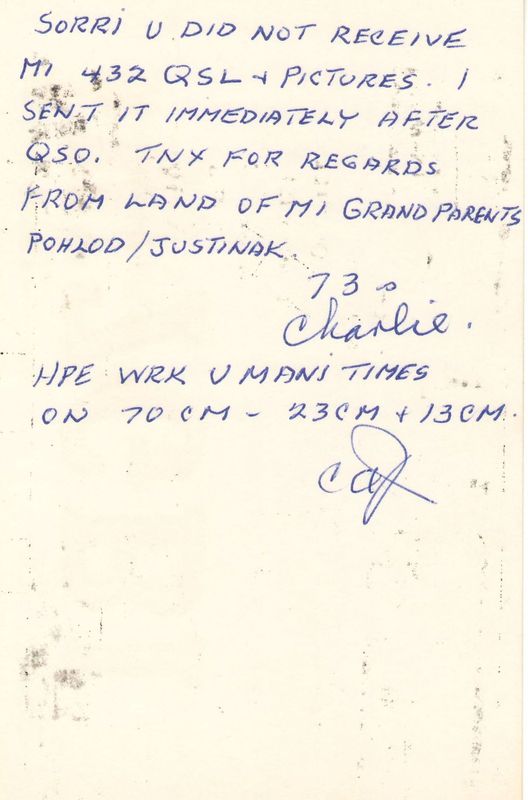 SORRI U DID NOT RECEIVE
MI 432 QSL + PICTURES. I
SENT IT IMMEDIATELY AFTER
QSO. TNX FOR REGARDS
FROM LAND OF MI GRANDPARENTS
POHLOD/JUSTINAK.
73s
Charlie.
HPE WRK U MANI TIMES
ON 70 CM - 23CM + 13CM.